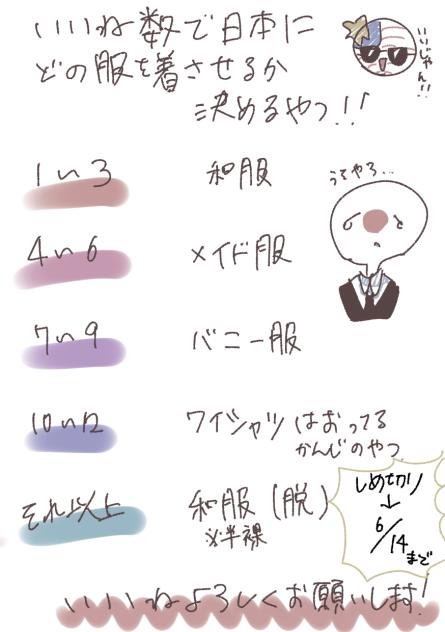 いいね数で日本に
どの服を着させるか
決めるやつ!!
いいじゃん!!
1〜3 和服
うそやろ...
4〜6 メイド服
7〜9 バニー服
10〜12 ワイシャツ はおってる
かんじのやつ
それ以上 和服(脱)
※半裸
しめきり
↓
6/14
まで
いいねよろしくお願いします!